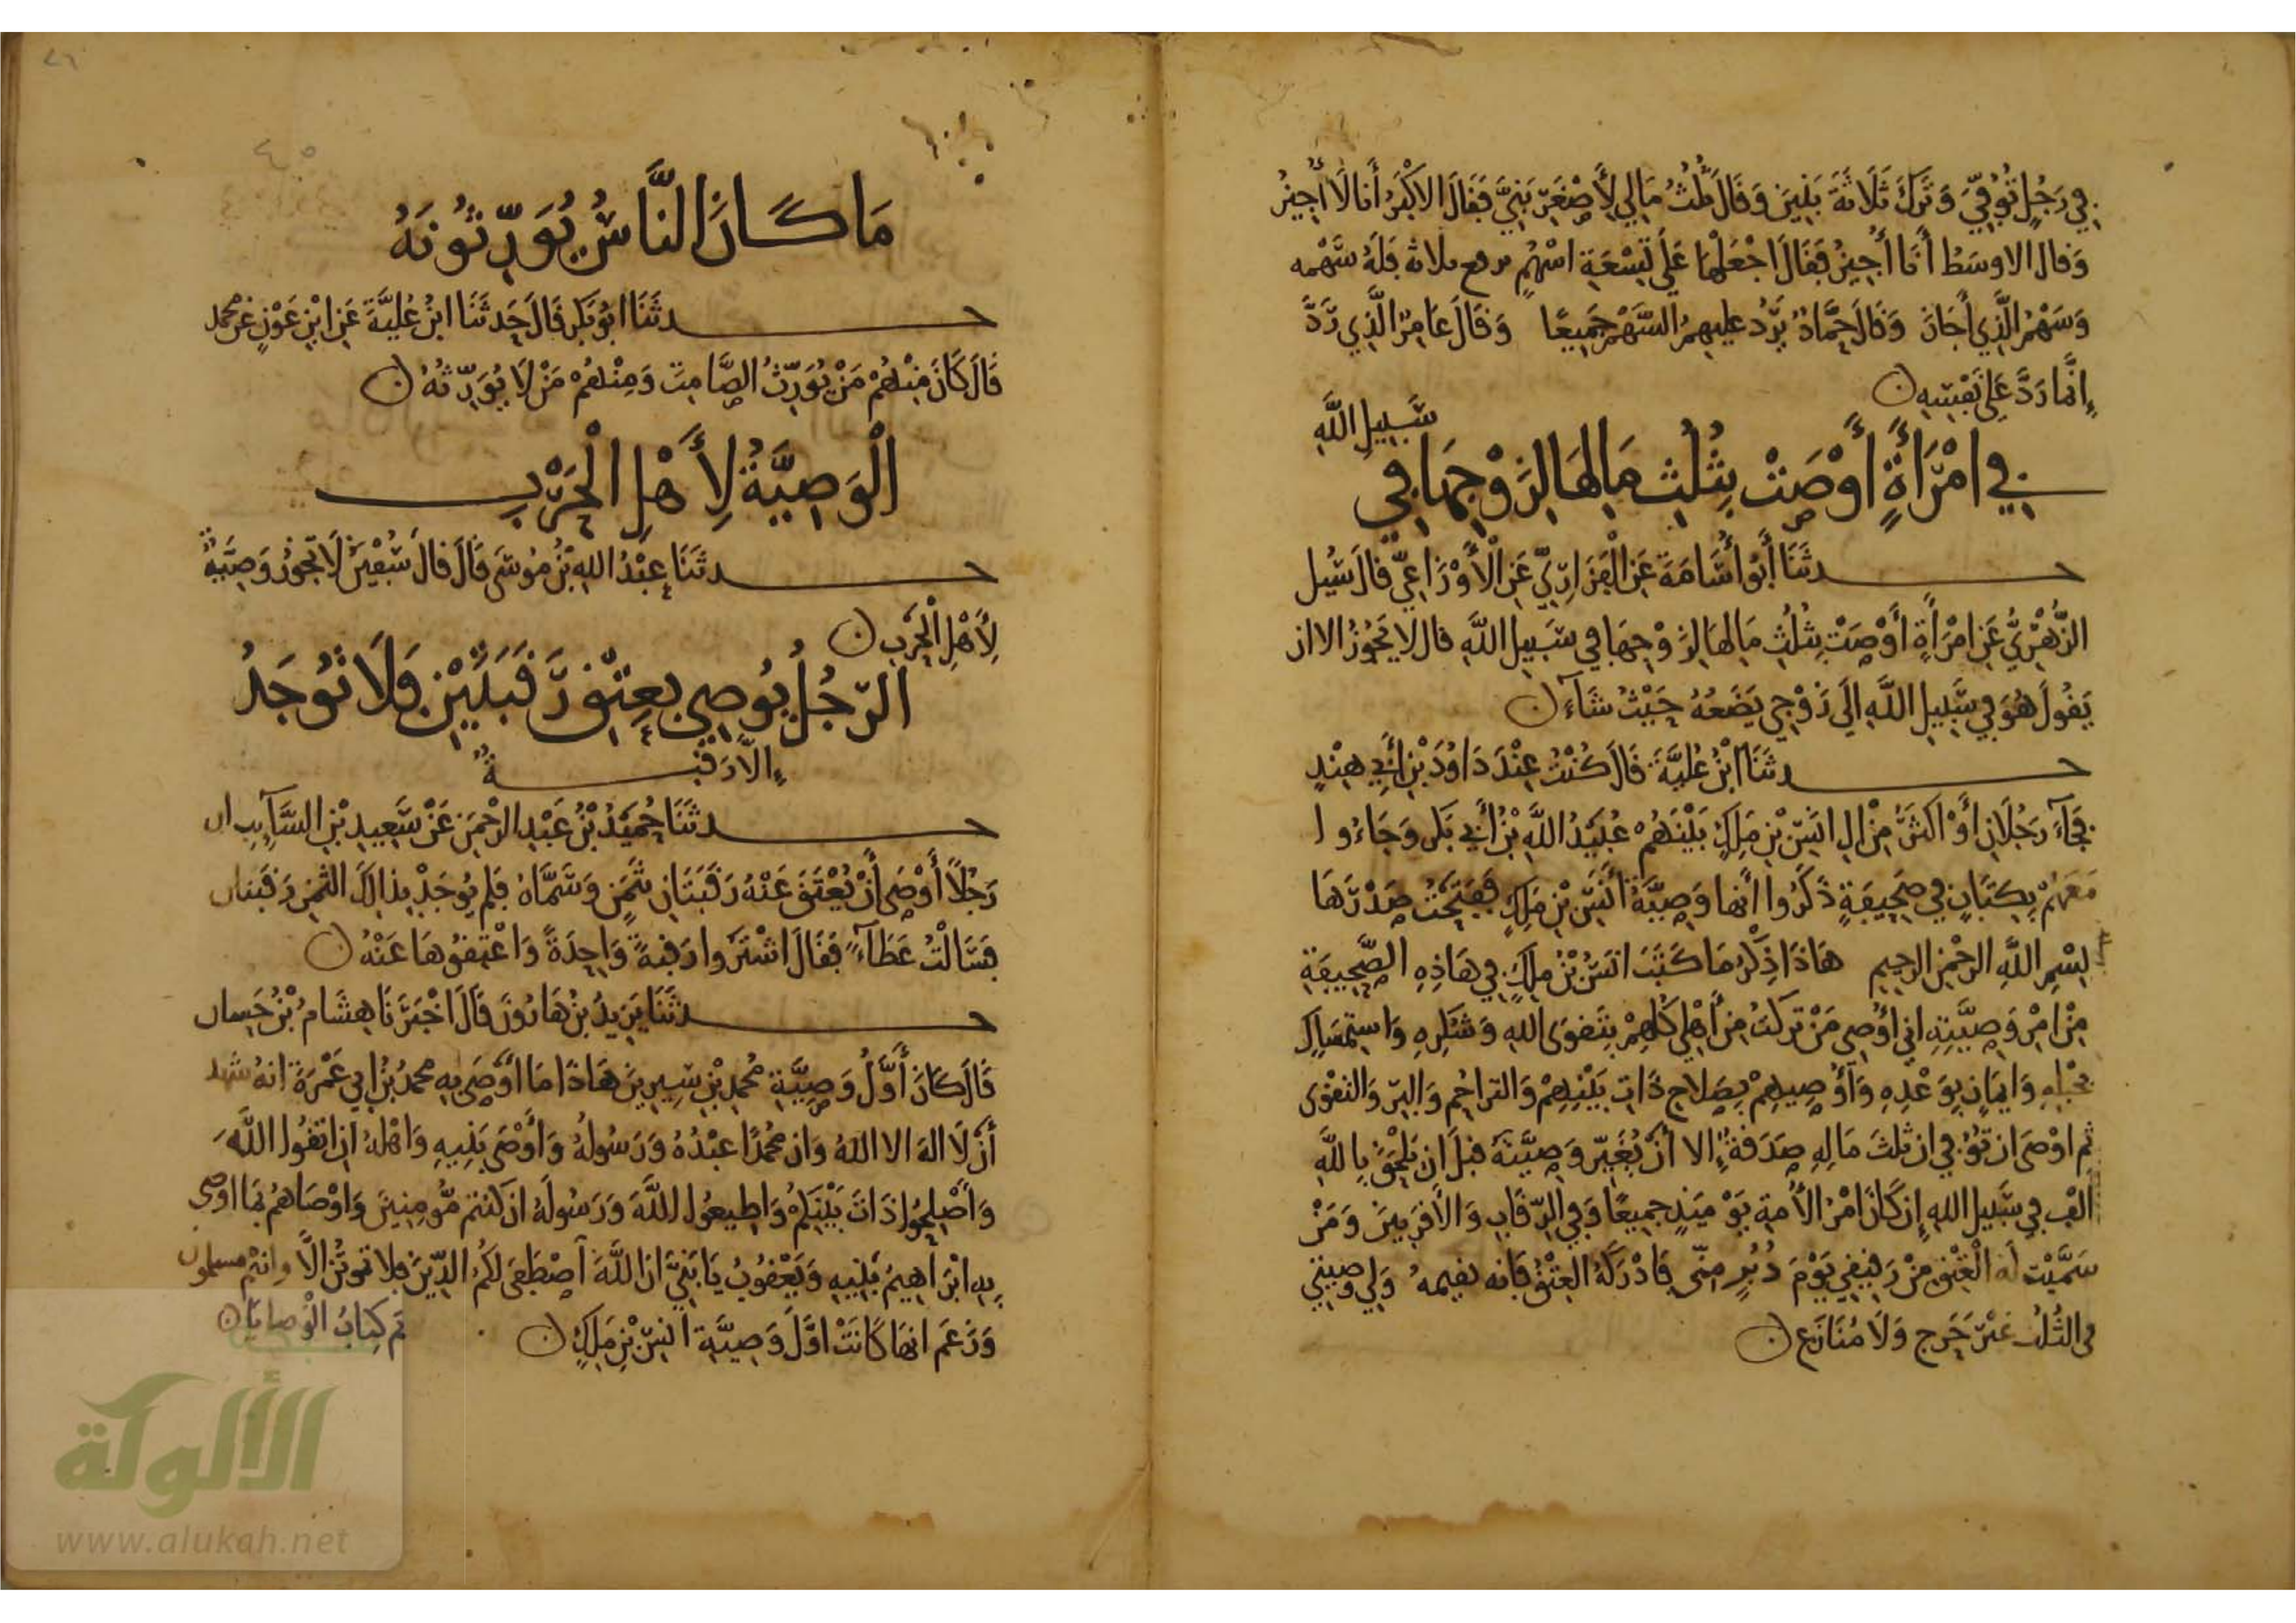 فِي رَجُلٍ تُوُفِّيَ وَتَرَكَ ثَلَاثَةَ بَنِينَ وَقَالَ ثُلُثُ مَالِي لِأَصْغَرِ بَنِيَّ فَقَالَ الاكْبَرُ أَنَا لَا أُجِيزُ
وَقال الاوسَطُ أَنَا أُجِيزُ فَقَالَ اجْعَلْهَا عَلَى تِسْعَةِ اسْهُمٍ يرفع ثلاثة فَلَهُ سَهْمه
وَسَهْمُ الَّذِي أَجَازَ وَقَالَ حَمَّادٌ يَرُدُّ عليهمُ السَّهْمَ جَمِيعًا وَقَالَ عَامِرٌ الَّذِي رَدَّ
إِنَّمَا رَدَّ عَلَى نَفْسِهِ
فِي امْرَأَةٍ أَوْصَتْ بِثُلُثِ مَالِهَا لِزَوْجِهَا فِي سَبِيلِ اللَّهِ
حدثَنَا أَبُو أُسَامَةَ عَنِ الْفَزَارِيِّ عَنِ الْأَوْزَاعِيِّ قالَ سُئِل
الزُّهْرِيُّ عَنِ امْرَأَةٍ أَوْصَتْ بِثُلُثِ مَالِهَا لِزَوْجِهَا فِي سَبِيلِ اللَّهِ قال لا يَجُوزُ الا ان
يَقُولَ هُوَ فِي سَبِيلِ اللَّهِ الَى زَوْجِي يَضَعُهُ حَيْثُ شَاءَ
حدثَنَا ابْنُ عُلَيَّةَ قَالَ كُنْتُ عِنْدَ دَاوُدَ بْنِ أَبِي هِنْدٍ
فَجَاءَ رَجُلَانِ أَوْ اكثَرُ مِنْ الِ انَسِ بْنِ مَلِكٍ بَيْنَهُمْ عُبَيْدُ اللَّهِ بْنُ أَبِي بَكرٍ وَجَاءُوا
مَعَهُمْ بِكِتَابٍ فِي صَحِيفَةٍ ذَكَرُوا أَنَّها وَصِيَّةُ أَنَسِ بْنِ مَلِكٍ فَفَتَحْتُ صَدْرَهَا
بِسْمِ اللَّهِ الرحْمنِ الرحِيمِ هَاذَا ذِكْرُ مَا كَتَبَ انَسُ بْنُ مَلِكٍ فِي هَاذِهِ الصَّحِيفَةِ
مِنْ امْرِ وَصِيَّتِهِ اني أُوصِي مَنْ تَرَكْتُ مِنْ أَهْلِي كُلِّهِمْ بِتَقوَى اللهِ وَشُكرِهِ وَاسْتِمْسَاكٍ
بحَبْلِهِ وَايمَانٍ بِوَعْدِهِ وَأُوصِيهِمْ بِصَلَاحِ ذَاتِ بَيْنِهِمْ وَالتراحُمِ وَالبِرِّ وَالتقوَى
ثم اوْصَى ان تُوُفِّيَ ان ثلثَ مَالِهِ صَدَقةٌ إِلا أَنْ يُغَيِّرَ وَصِيَّتَهُ قبلَ ان يَلْحَقَ بِاللَّهِ
أَلْفٌ فِي سَبِيلِ اللهِ إِن كَانَ امْرُ الأُمةِ يَوْمَئِذٍ جمِيعًا وَفِي الرِّقَابِ وَالأَقرَبِينَ وَمَنْ
سَمَّيْت لَهُ الْعِتْقَ مِنْ رَقِيقِي يَوْمَ دُبُرٍ مِنِّي فَادْرَكَهُ العِتْقُ فانه يقيمه وَلِي وصِيتِي
فى الثُّلُثِ غيْرَ حَرَجٍ وَلَا مُنَازَعٍ
مَا كَانَ النَّاسُ يُوَرِّثُونَهُ
حدثَنَا ابُو بَكرٍ قَالَ حَدثَنَا ابنُ عُلَيَّةَ عَنِ ابْنِ عَوْنٍ عَنْ محمد
قَالَ كَانَ مِنْهُمْ مَنْ يُوَرِّثُ الصَّامِتَ وَمِنْهُمْ مَنْ لَا يُوَرِّثُهُ
الْوَصِيَّةُ لِأَهْلِ الْحَرْبِ
حدثَنَا عبْدُ اللهِ بْنُ مُوسَى قَالَ قالَ سُفْيَنُ لَا تجُوزُ وَصِيَّةٌ
لِأَهْلِ الْحَرْبِ
الرَّجُلُ يُوصِي بعِتْقِ رَقَبَتَيْنِ فَلَا تُوجَدُ
إِلَّا رَقَبَةٌ
حدثَنَا حُمَيْدُ بْنُ عَبْدِ الرحْمَنِ عَنْ سَعِيدِ بْنِ السَّآئِبِ ان
رَجُلًا أَوْصَى أَنْ يُعْتَقَ عَنْهُ رَقَبَتَانِ بثَمَنٍ وَسَمَّاهُ فلم يُوجَدْ بِذَالِكَ الثمنِ رَقبتان
فَسَأَلْتُ عَطَآءً فَقَالَ اشْتَرُوا رَقبةً وَاحِدَةً وَاعْتِقُوهَا عَنْهُ
حدثَنَا يَزِيدُ بنُ هَارُونَ قَالَ اخْبَرَنَا هِشَامُ بْنُ حَسان
قَالَ كَانَ أَوَّلُ وَصِيَّةِ مُحمدِ بْنِ سِيرِينَ هَاذَا مَا أَوْصَى بِهِ محمدُ بْنُ ابِي عَمْرَةَ انهُ شهد
أَنْ لَا اله الا اللهُ وَان مُحمدًا عَبْدُهُ وَرَسُولُهُ وَأَوْصَى بَنِيهِ وَاهْلهُ ان اتقُوا اللَّهَ
وَأَصْلِحُوا ذَاتَ بَيْنِكُمْ وَاطِيعُوا اللَّهَ وَرَسُولَهُ ان كنتم مُّومِنِينَ وَاوْصَاهُمْ بمَا اوصى
بِهِ ابْرَاهِيمُ بَنِيهِ وَيَعْقُوبُ يَا بَنِيَّ ان اللَّهَ اصْطَفَى لكُمُ الدِّينَ فلا تموتُنَّ الَّا وانتم مسلمون
وَزَعَم انهَا كَانَتْ اوَّلَ وَصِيَّةِ انَسِ بْنِ مَلِكٍ تم كتابُ الْوصايا
الألوكة
www.alukah.net